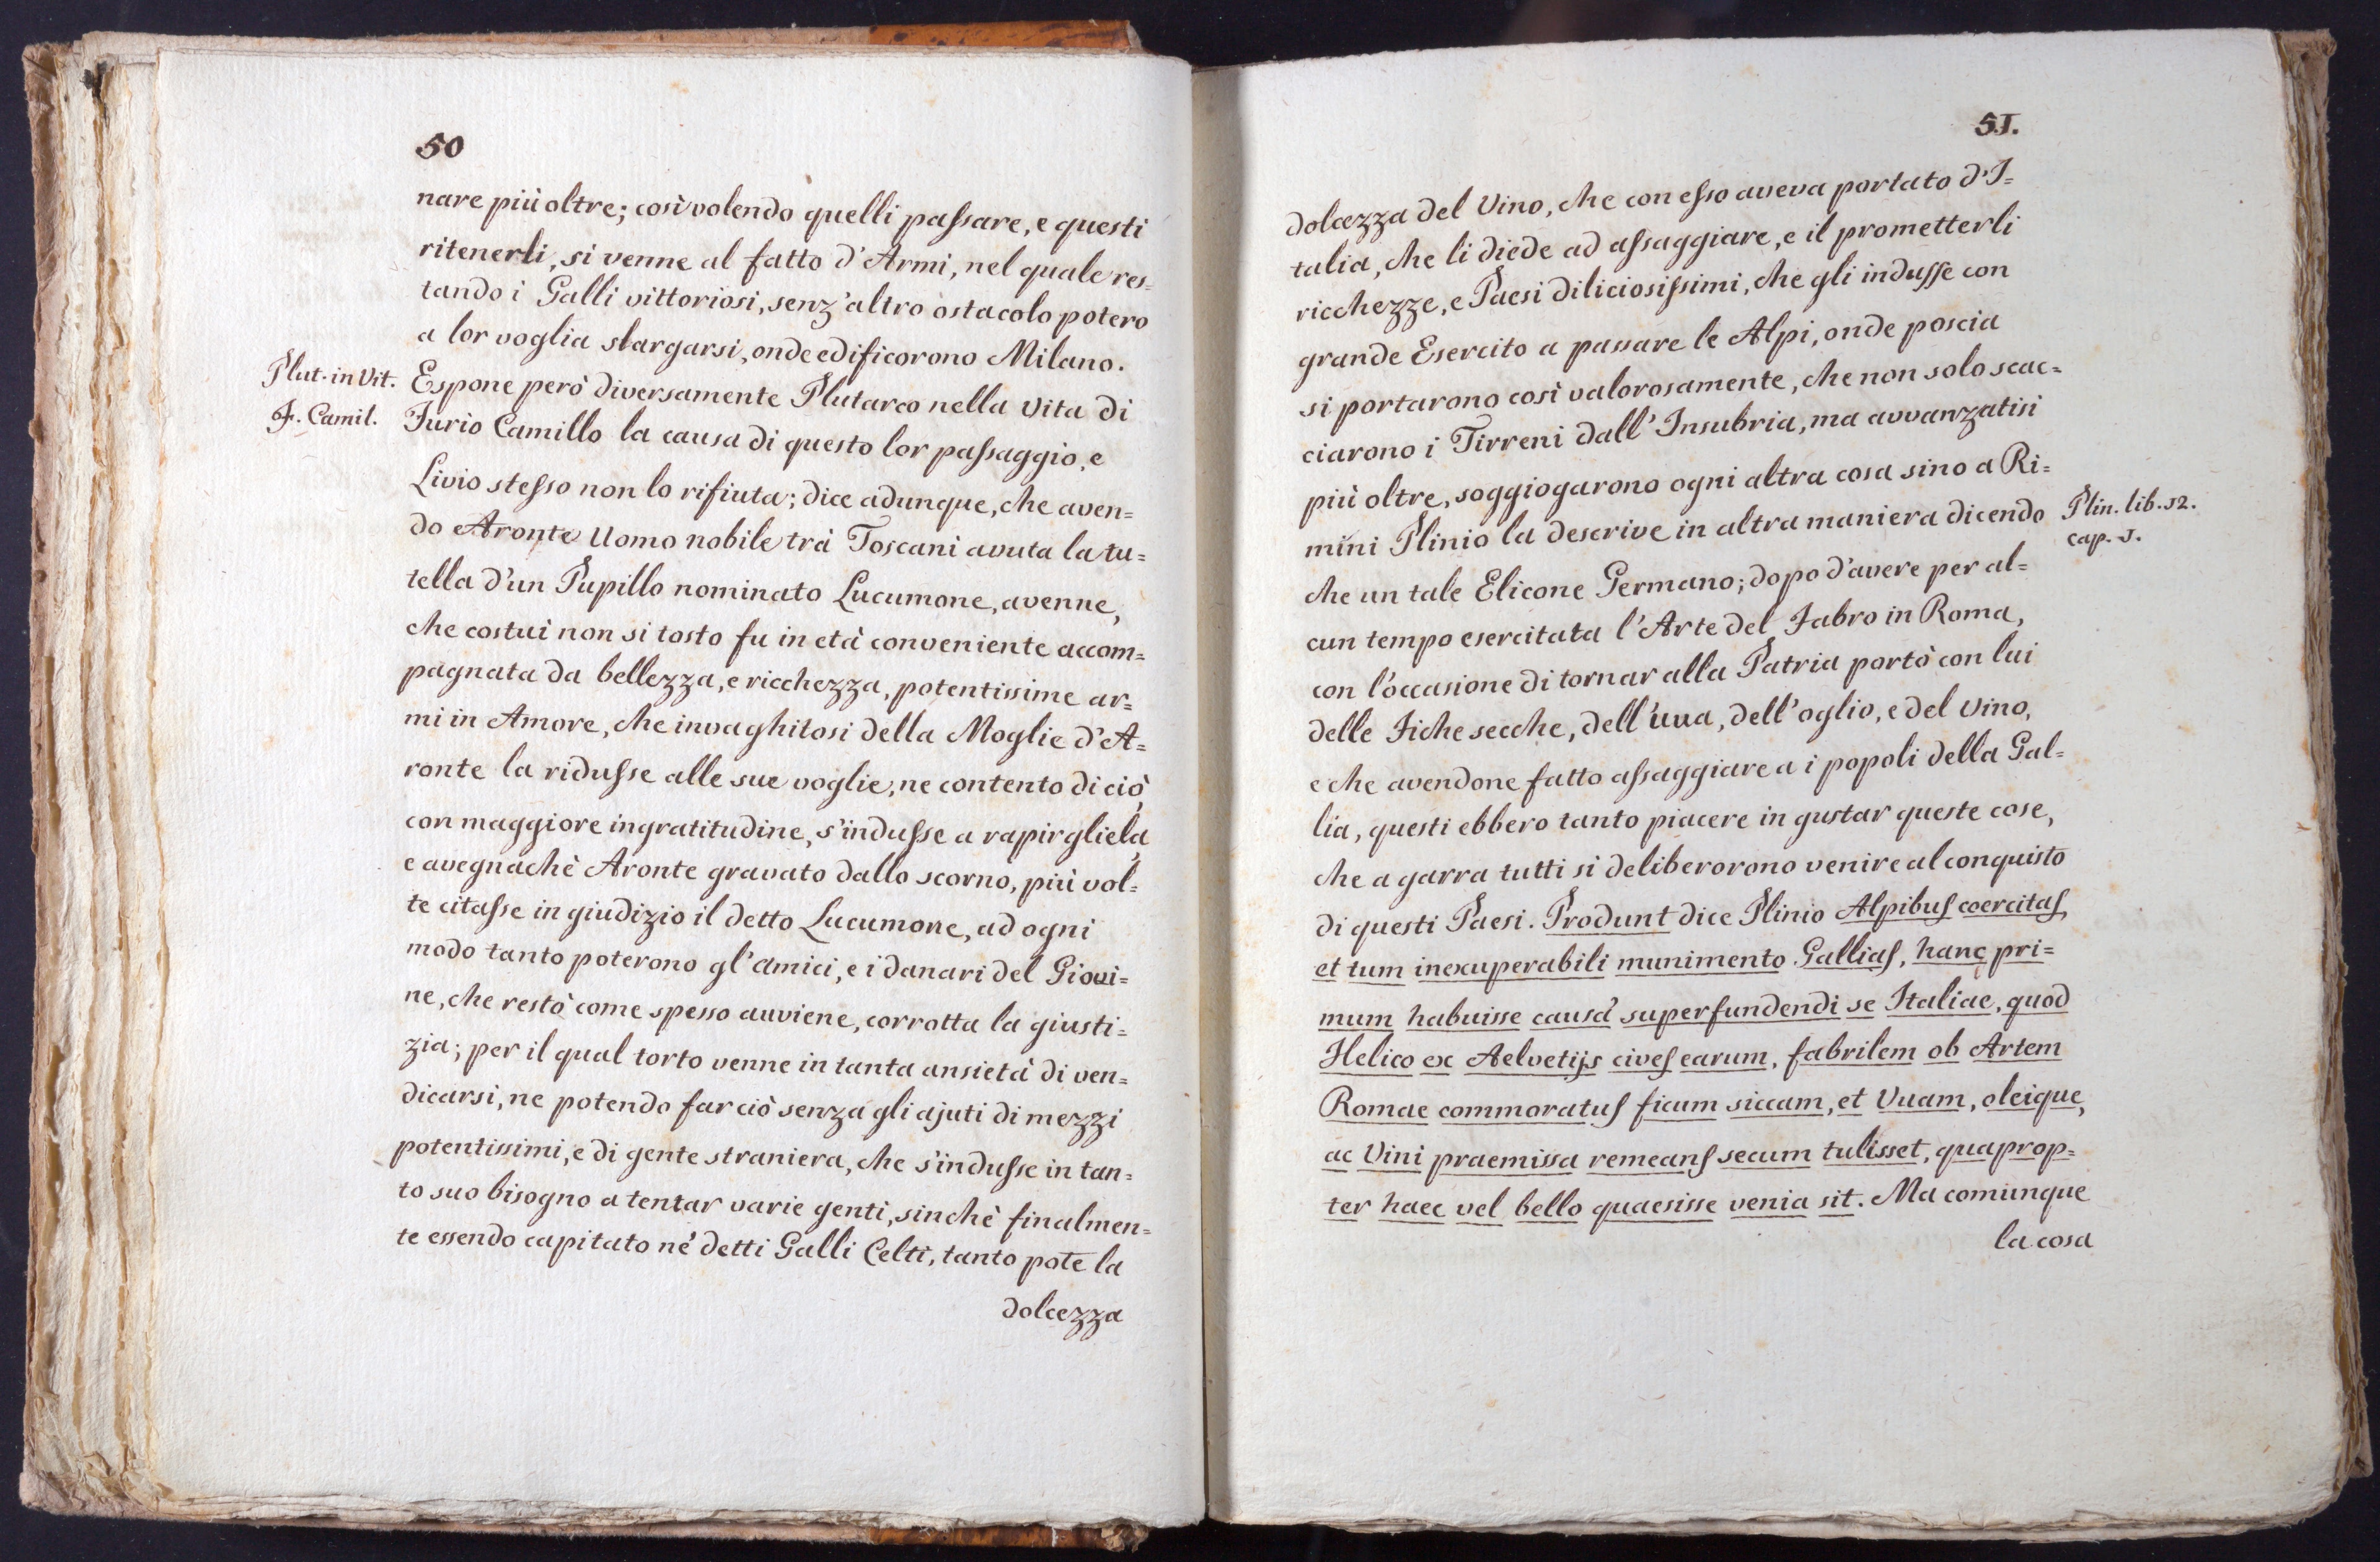 50
nare più oltre; così volendo quelli passare, e questi
ritenerli, si venne al fatto d'Armi, nel quale res=
tando i Galli vittoriosi, senz'altro ostacolo potero
a lor voglia slargarsi, onde edificorono Milano.
Plut. in Vit.
F. Camil.
Espone però diversamente Plutarco nella Vita di
Furio Camillo la causa di questo lor passaggio, e
Livio stesso non lo rifiuta; dice adunque, che aven=
do Aronte Uomo nobile trà Toscani avuta la tu=
tella d'un Pupillo nominato Lucumone, avenne,
che costui non si tosto fu in età conveniente accom=
pagnata da bellezza, e ricchezza, potentissime ar=
mi in Amore, che invaghitosi della Moglie d'A=
ronte la ridusse alle sue voglie, ne contento di ciò,
con maggiore ingratitudine, s'indusse a rapirgliela,
e avegnachè Aronte gravato dallo scorno, più vol=
te citasse in giudizio il detto Lucumone, ad ogni
modo tanto poterono gl'amici, e i danari del Giovi=
ne, che restò come spesso auviene, corrotta la giusti=
zia; per il qual torto venne in tanta ansietà di ven=
dicarsi, ne potendo far ciò senza gli ajuti di mezzi
potentissimi, e di gente straniera, che s'indusse in tan=
to suo bisogno a tentar varie genti, sinchè finalmen=
te essendo capitato ne' detti Galli Celti, tanto pote la
dolcezza
51.
dolcezza del Vino, che con esso aveva portato d'I=
talia, che li diede ad assaggiare, e il prometterli
ricchezze, e Paesi diliciosissimi, che gli indusse con
grande Esercito a passare le Alpi, onde poscia
si portarono così valorosamente, che non solo scac=
ciarono i Tirreni dall'Insubria, ma avvanzatisi
più oltre, soggiogarono ogni altra cosa sino a Ri=
mini Plinio la descrive in altra maniera dicendo
Plin. lib. 12.
cap. 1.
che un tale Elicone Germano; dopo d'avere per al=
cun tempo esercitata l'Arte del Fabro in Roma,
con l'occasione di tornar alla Patria portò con lui
delle Fiche secche, dell'uua, dell'oglio, e del Vino,
e che avendone fatto assaggiare a i popoli della Gal=
lia, questi ebbero tanto piacere in gustar queste cose,
che a garra tutti si deliberorono venire al conquisto
di questi Paesi. Produnt dice Plinio Alpibus coercitas,
et tum inexuperabili munimento Gallias, hanc pri=
mum habuisse causã superfundendi se Italiae, quod
Helico ex Aelvetijs cives earum, fabrilem ob Artem
Romae commoratus ficum siccam, et Vuam, oleique,
ac Vini praemissa remeans secum tulisset, quaprop=
ter haec vel bello quaesisse venia sit. Ma comunque
la cosa